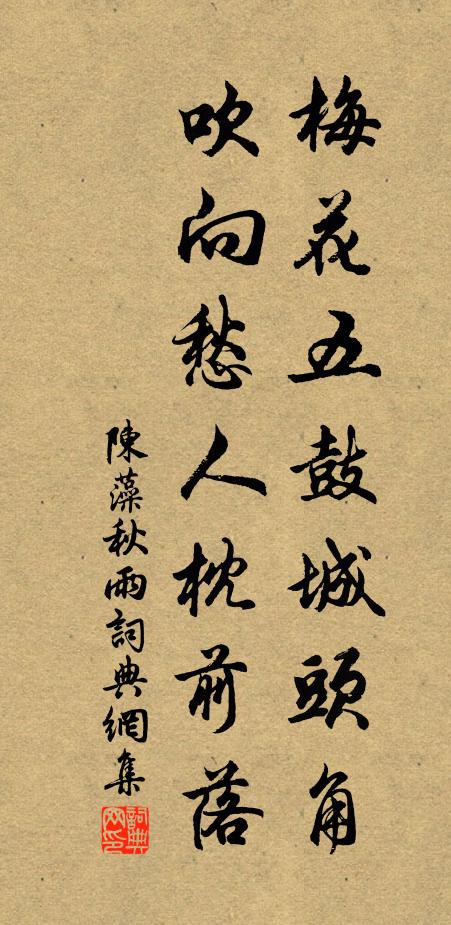 梅花五鼓城頭角
吹向愁人枕前落
陳藻秋雨詞典網集
詞典网印